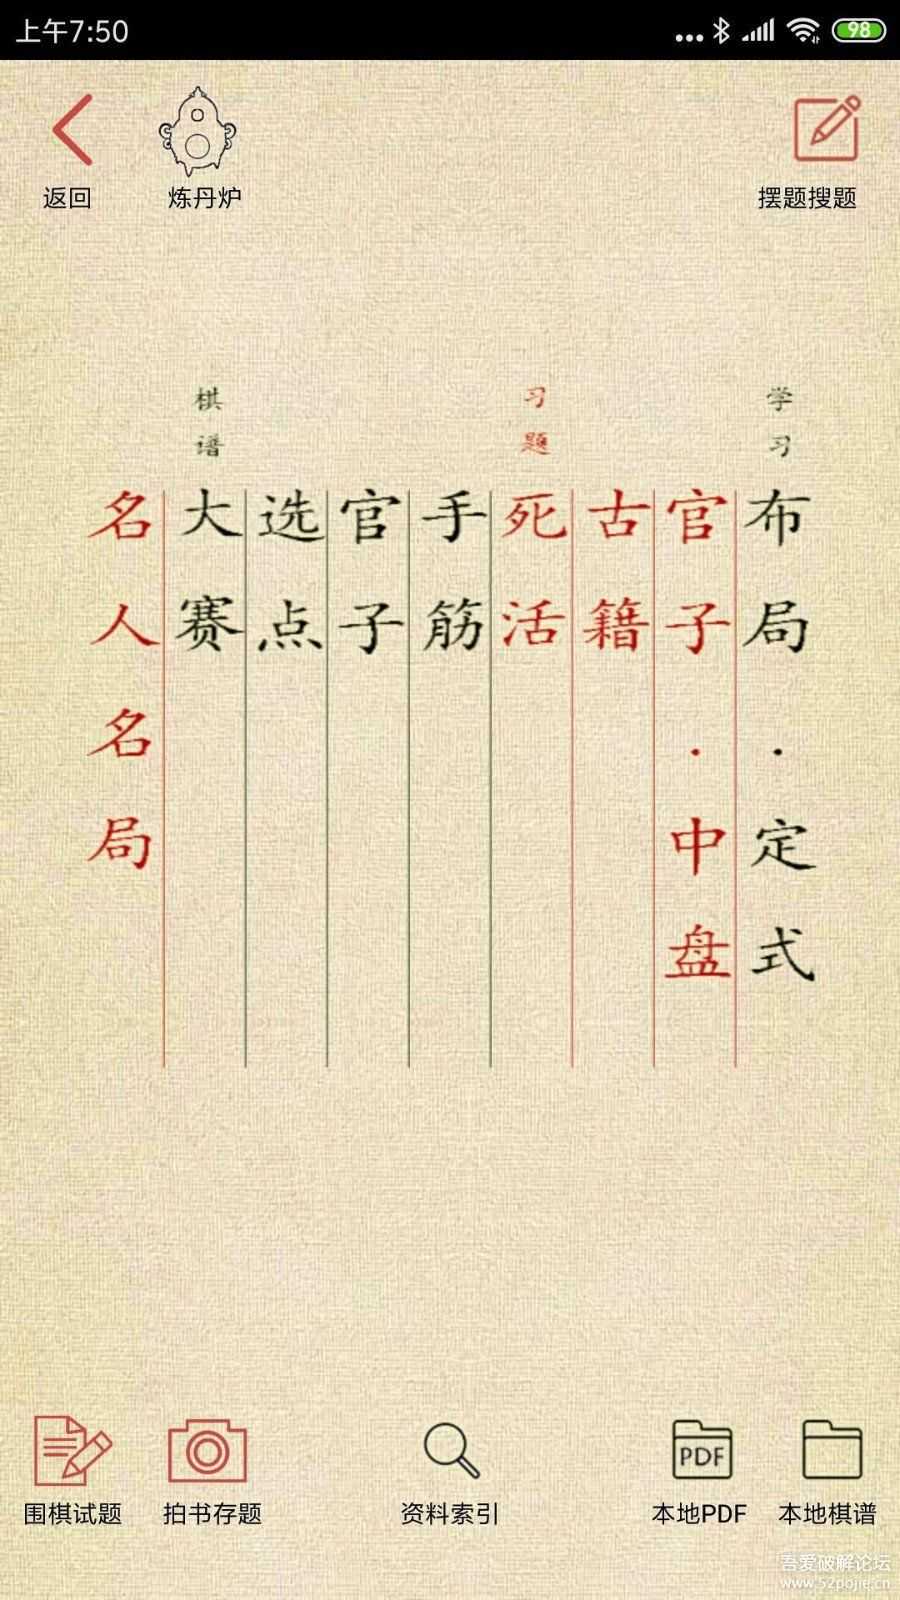 上午7:50
98
返回
炼丹炉
摆题搜题
学习
布局·定式
官子·中盘
古籍
习题
死活
手筋
官子
选点
棋谱
大赛
名人名局
围棋试题
拍书存题
资料索引
PDF
本地PDF
本地棋谱
吾爱破解论坛
www.52pojie.cn